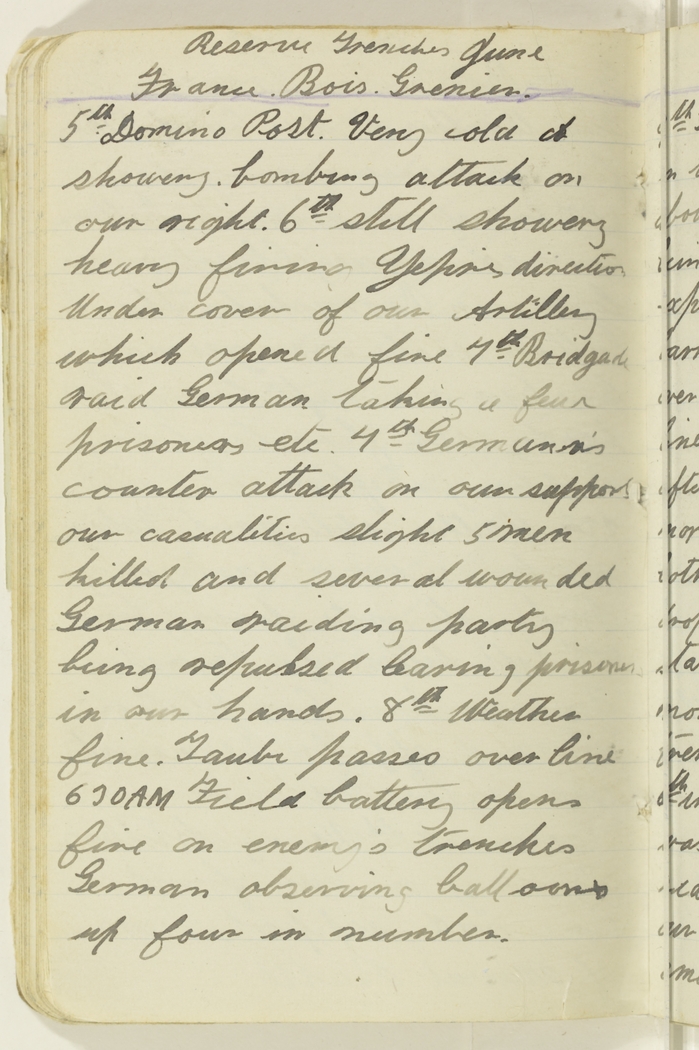 Reserve Trenches June
France. Bois. Grenier.
5th Domino Post. Very cold &
showery. bombing attack on
our right. 6th still showery
heavy firing Yepres direction
Under cover of our Artillery
which opened fire 7th Bridgade
raid German taking a few
prisoners etc. 7th German's
counter attack on our support
our casualities slight 5 men
killed and several wounded
German raiding party
being repulsed leaving prisoners
in our hands. 8th Weather
fine. Taube passes over line
630AM Field battery opens
fire on enemy's trenches
German observing balloons
up four in number.